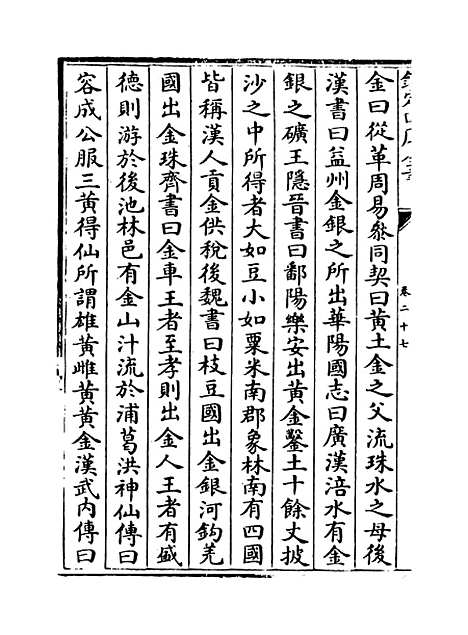 欽定四庫全書
卷二十七
金曰從革周易叅同契曰黄土金之父流珠水之母後
漢書曰益州金銀之所出華陽國志曰廣漢涪水有金
銀之礦王隱晉書曰鄱陽樂安出黄金鑿土十餘丈披
沙之中所得者大如豆小如粟米南郡象林南有四國
皆稱漢人貢金供稅後魏書曰枝豆國出金銀河鈎羌
國出金珠齊書曰金車王者至孝則出金人王者有盛
德則游於後池林邑有金山汁流於浦葛洪神仙傳曰
容成公服三黄得仙所謂雄黄雌黄黄金漢武内傳曰